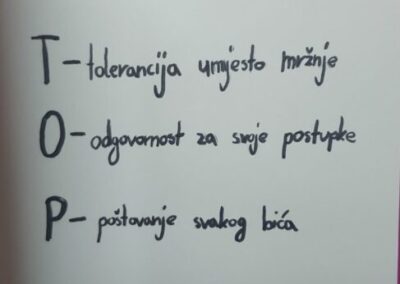 T - tolerancija umjesto mržnje
O - odgovornost za svoje postupke
P - poštovanje svakog bića